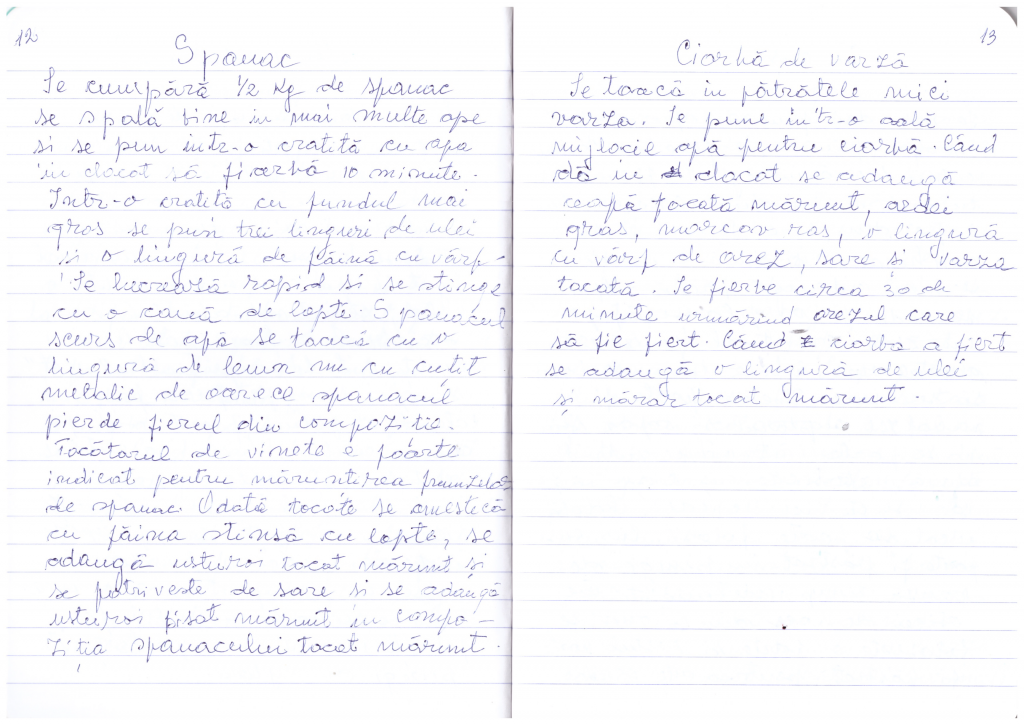 12
Spanac
Se cumpără 1/2 kg de spanac
se spală bine în mai multe ape
si se pun într-o cratită cu apa
in clocot să fiarbă 10 minute.
Într-o cratită cu fundul mai
gros se pun trei linguri de ulei
si o lingură de făină cu vârf.
Se lucrează rapid si se stinge
cu o cană de lapte. Spanacul
scurs de apă se toacă cu o
lingură de lemn nu cu cutit
metalic de oarece spanacul
pierde fierul din compozitie.
Tocătorul de vinete e foarte
indicat pentru mărunțirea frunzelor
de spanac. Odată tocate se amestică
cu făina stinsă cu lapte, se
adaugă usturoi tocat mărunt si
se potriveste de sare si se adaugă
usturoi pisat mărunt în compo-
ziția spanacului tocat mărunt.
13
Ciorbă de varză
Se toacă in pătrătele mici
varza. Se pune într-o oală
mijlocie apă pentru ciorbă. Când
dă in clocot se adaugă
ceapă tocată mărunt, ardei
gras, morcov ras, o lingură
cu vârf de orez, sare și varza
tocată. Se fierbe circa 30 de
minute urmărind orezul care
să fie fiert. Când ciorba a fiert
se adaugă o lingură de ulei
și mărar tocat mărunt.